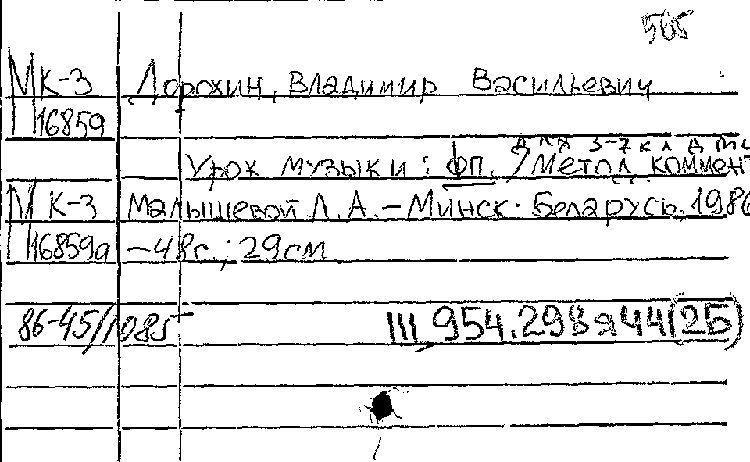 565
МК-3 Дорохин, Владимир Васильевич
16859
для 3-7 кл ДМ
Урок музыки : фп. / Метод. коммент
МК-3 Малышевой Л. А. – Минск: Беларусь. 1986
16859а – 48с.; 29см
86-45/1085 III 954.298я44(2Б)